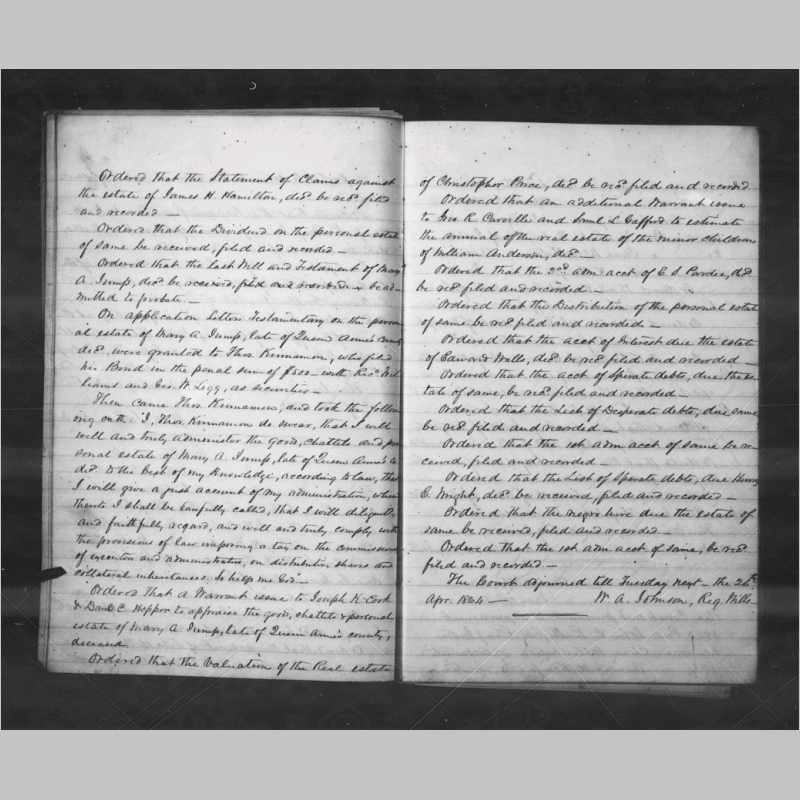 Ordered that the Statement of Claims against
the estate of James H. Hamilton, decd. be recd. filed
and recorded —
Ordered that the Dividend on the personal estate
of same be received, filed and recorded —
Ordered that the Last Will and Testament of Mary
A. Jump, decd. be received, filed and recorded & be ad-
mitted to probate. —
On application Letters Testamentary on the person
al estate of Mary A. Jump, late of Queen Anne's County
decd. were granted to Thos. Kinnamon, who filed
his Bond in the penal sum of $500 with Wil-
liams and Geo. W. Legg, as securities —
Then came Thos. Kinnamon, and took the follow
ing oath: I, Thos. Kinnamon do swear, that I will
well and truly administer the goods, chattels and per
sonal estate of Mary A. Jump, late of Queen Anne's Co
decd. to the best of my knowledge, according to law, that
I will give a just account of my administration, when
thereto I shall be lawfully called, that I will diligently
and faithfully regard, and will and truly comply with
the provisions of law imposing a tax on the commissions
of executors and administrators, on distributive shares and
collateral inheritances. So help me God. —
Ordered that a Warrant issue to Joseph K. Cook
& Danl. C. Hopper to appraise the goods, chattels & personal
estate of Mary A. Jump, late of Queen Anne's county,
deceased.
Ordered that the Valuation of the Real estate
of Christopher Price, decd. be recd. filed and recorded
Ordered that an additional Warrant issue
to Geo. R. Carville and Saml. L. Gafford to estimate
the annual of the real estate of the minor children
of William Anderson, decd. —
Ordered that the 2nd. adm. acct. of E. S. Pardee, decd.
be recd. filed and recorded —
Ordered that the Distribution of the personal estate
of same be recd. filed and recorded —
Ordered that the acct. of Interest due the estate
of Edward Wells, decd. be recd. filed and recorded —
Ordered that the acct. of Sperate debts, due the es-
tate of same, be recd. filed and recorded —
Ordered that the List of Desperate debts, due same
be recd. filed and recorded —
Ordered that the 1st. adm. acct. of same be re-
ceived, filed and recorded —
Ordered that the List of Sperate debts, due Henry
C. Wright, decd. be received, filed and recorded —
Ordered that the negro hire due the estate of
same be received, filed and recorded —
Ordered that the 1st. adm. acct. of same, be recd.
filed and recorded —
The Court adjourned till Tuesday next — the 26th.
Apr. 1864 — W. A. Johnson, Reg. Wills